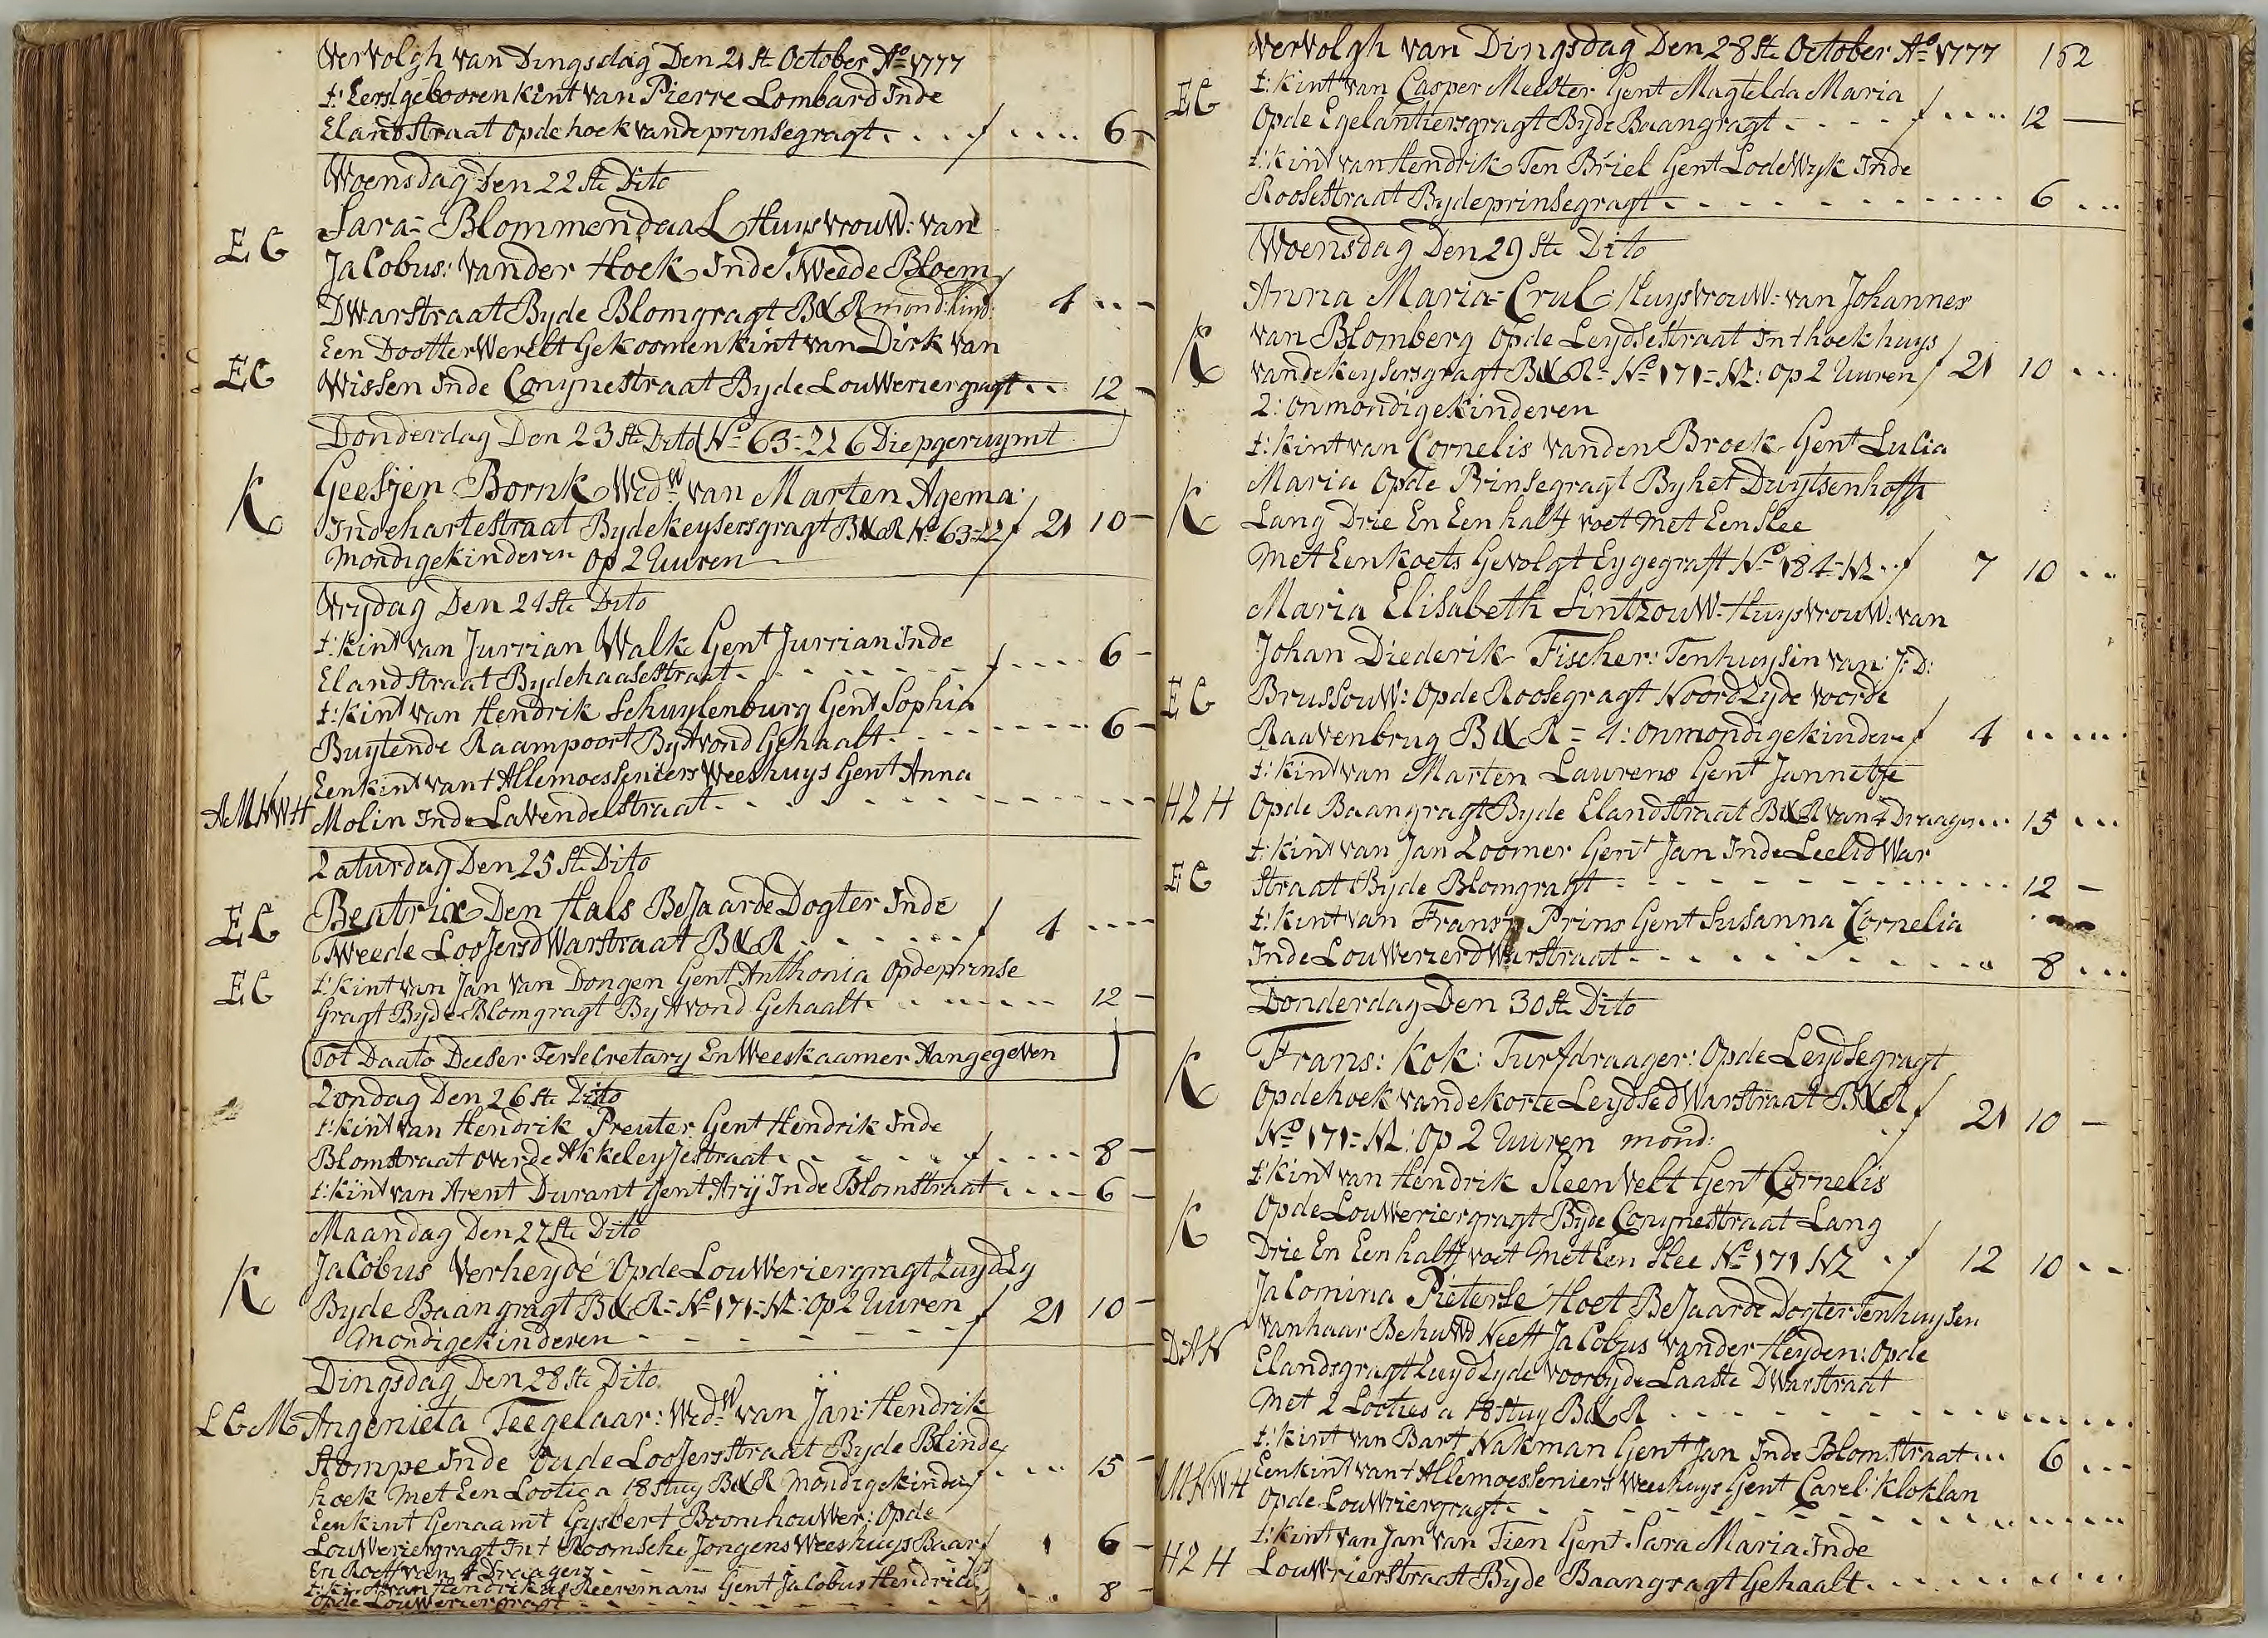 Vervolgh van Dingsdag Den 21 st October Ao 1777
t: Eerstgebooren kint van Pierre Lombard Inde
Elandstraat opde hoek vande prinsegragt . . . f . . . . 6 -
Woensdag Den 22 ste Dito
EG Sara = Blommendaal Huysvrouw: van
Jacobus: vander Hoek Inde Tweede Bloem
Dwarstraat Byde Blomgragt B&R mond: kind: f 4 . . -
EG Een Dootter Werelt Gekoomen kint van Dirk van
Wissen Inde Conynestraat Byde Louweriergragt . . 12 -
Donderdag Den 23 ste Dito No 63 = 22 6 Diep geruymt
K Geesjen Bornk Wedw van Marten Agema
Inde hartestraat Byde keysersgragt B&R No 63=22 f 21 10 -
Mondige kinderen op 2 Uuren
Vrydag Den 24 ste Dito
t: kint van Jurrian Walk Gent Jurrian Inde
Elandstraat Byde haasestraat . . . . f . . . . 6 -
t: kint van Hendrik Schuylenburg Gent Sophia
Buytende Raampoort By Avond Gehaalt . . . . 6 -
Een kint van t Allemoesseniers Weeshuys Gent Anna
AMNWH Molin Inde Lavendelstraat . . . .
Zaturdag Den 25 ste Dito
EG Beatrix Den Hals Bejaarde Dogter Inde
Tweede Loojersdwarstraat B&R . . . . f 4 . . . .
EG t: kint van Jan van Dongen Gent Anthonia Opde prinse
Gragt Byde Blomgragt By Avond Gehaalt . . . . 12 -
Tot Daato Deeser Ter Secretary En Weeskaamer Aangegeven
Zondag Den 26 ste Dito
t: kint van Hendrik Preuter Gent Hendrik Inde
Blomstraat over de Akkeleyjestraat . . . . f . . . . 8 -
t: kint van Arent Durant Gent Arij Inde Blomstraat . . . . 6 -
Maandag Den 27 ste Dito
K Jacobus Verheyde Opde Louweriergragt Zuydzy
Byde Baangragt B&R = No 171 = NZ: op 2 Uuren f 21 10 -
Mondige kinderen
Dingsdag Den 28 ste Dito
LGM Angenieta Teegelaar: Wedw van Jan: Hendrik
Stompe Inde Oude Loojersstraat Byde Blinde
hoek Met Een Lootie a 18 stuy B&R Mondige kinder f . . . 15 -
Een kint Genaamt Gysbert Boomhouwer: Opde
Louweriergragt In t Roomsche Jongens Weeshuys Baar f 6 -
En Roeff van 4 Draagers
t: kint van Hendrikus Reeremans Gent Jacobus Hendrick f . . . 8 -
opde Louweriergragt
Vervolgh van Dingsdag Den 28 ste October Ao 1777 152
EG t: kint van Casper Meester Gent Magtelda Maria
Opde Egelantiersgragt Byde Baangragt . . . . f . . . . 12 -
t: kint van Hendrik Ten Briel Gent Lodewyk Inde
Roosestraat Byde prinsegragt . . . . 6 . . .
Woensdag Den 29 ste Dito
Anna Maria = Crul: Huysvrouw: van Johannes
K van Blomberg opde Leydsestraat In t hoekhuys
vande keysersgragt B&R = No 171 = NZ: op 2 Uuren f 21 10 . . .
2: onmondige kinderen
t: kint van Cornelis vanden Broek Gent Lucia
Maria Opde Prinsegragt By het Duytsenhoff
K Lang Drie En Een halff voet Met Een Slee
Met Een koets Gevolgt Eygegraft No 184 = NZ . . f 7 10 . .
Maria Elisabeth Sintzouw: Huysvrouw: van
Johan Diederik Fischer: Tenhuysin van: J: D:
EG Brussouw: Opde Roosegragt Noordzyde voorde
Raavenbrug B&R = 4: onmondige kinder f 4 . . . . .
t: kint van Marten Laurens Gent Jannetje
HZH Opde Baangragt Byde Elandstraat B&R van 4 Draagers . . . 15 . . .
t: kint van Jan Zoomer Gent Jan Inde Leelidwar
EG straat Byde Blomgragt . . . . 12 -
t: kint van Frans Prins Gent Susanna Cornelia
Inde Louwerierdwarstraat . . . . 8 . . .
Donderdag Den 30 ste Dito
K Frans: Kok: Turfdraager: Opde Leydsegragt
Opde hoek vande korte Leydsedwarstraat B&R f 21 10 -
No 171 = NZ: Op 2 Uuren mond:
t: kint van Hendrik Steenvelt Gent Cornelis
K Opde Louweriergragt Byde Conynestraat Lang
Drie En Een halff voet Met Een Slee No 171 NZ . f 12 10 . .
Jacomina Pieterse Hoet Bejaarde Dogter Tenhuysen
DAK van haar Behuwd Neeff Jacobus vander Heyden: Opde
Elandsgragt Zuydzyde voorbyde Laaste Dwarstraat
Met 2 Looties a 18 stuy B&R . . . .
t: kint van Bart Nakman Gent Jan Inde Blomstraat . . . 6 . . .
MNWH Een kint van t Allemoesseniers Weeshuys Gent Carel: Kloklan
Opde Louwriergragt . . . .
t: kint van Jan van Tien Gent Sara Maria Inde
HZH Louwrierstraat Byde Baangragt Gehaalt . . . .